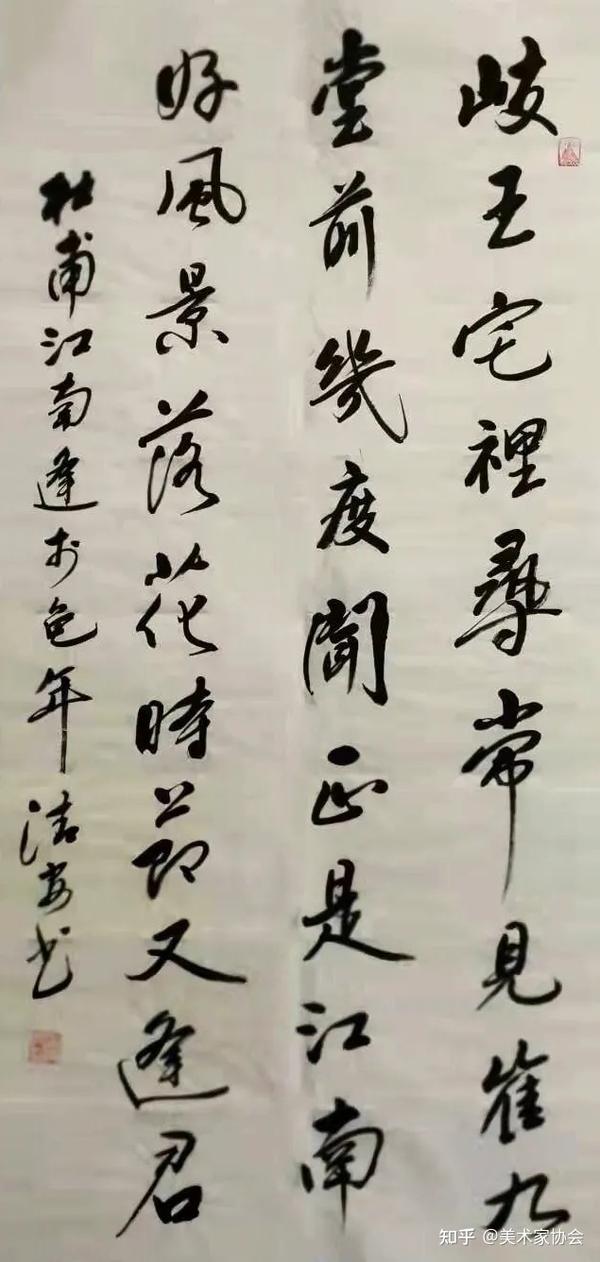 岐王宅裡尋常見崔九
堂前幾度聞正是江南
好風景落花時節又逢君
杜甫江南逢李龟年 洁安书
知乎 @美术家协会